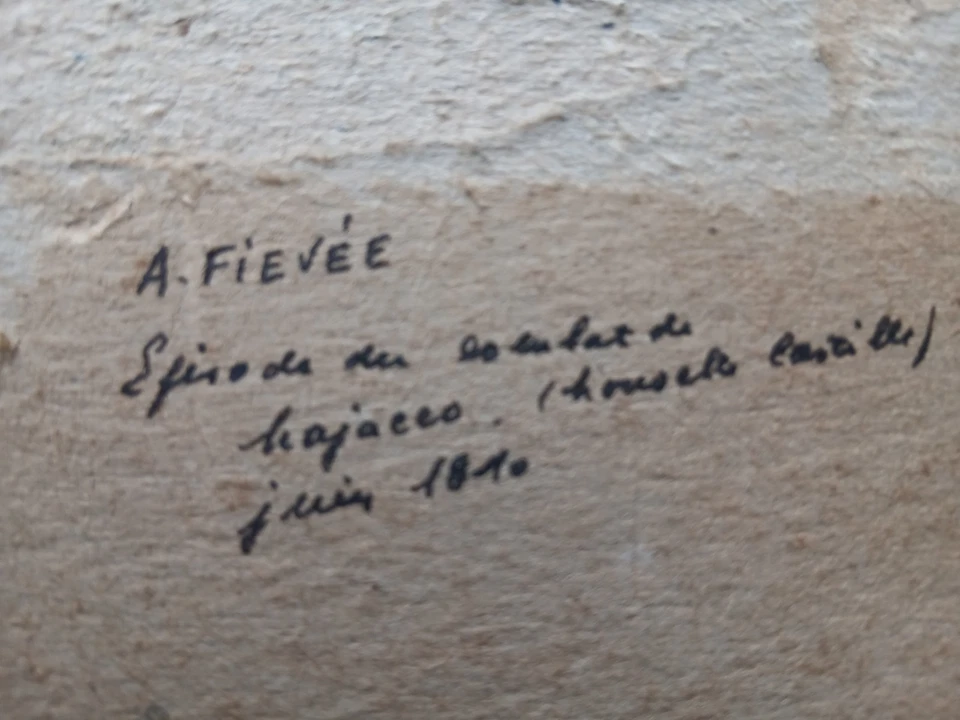 A. FiEVÉE
Episode du combat de
hajacco. (nouvelle Castille)
juin 1810